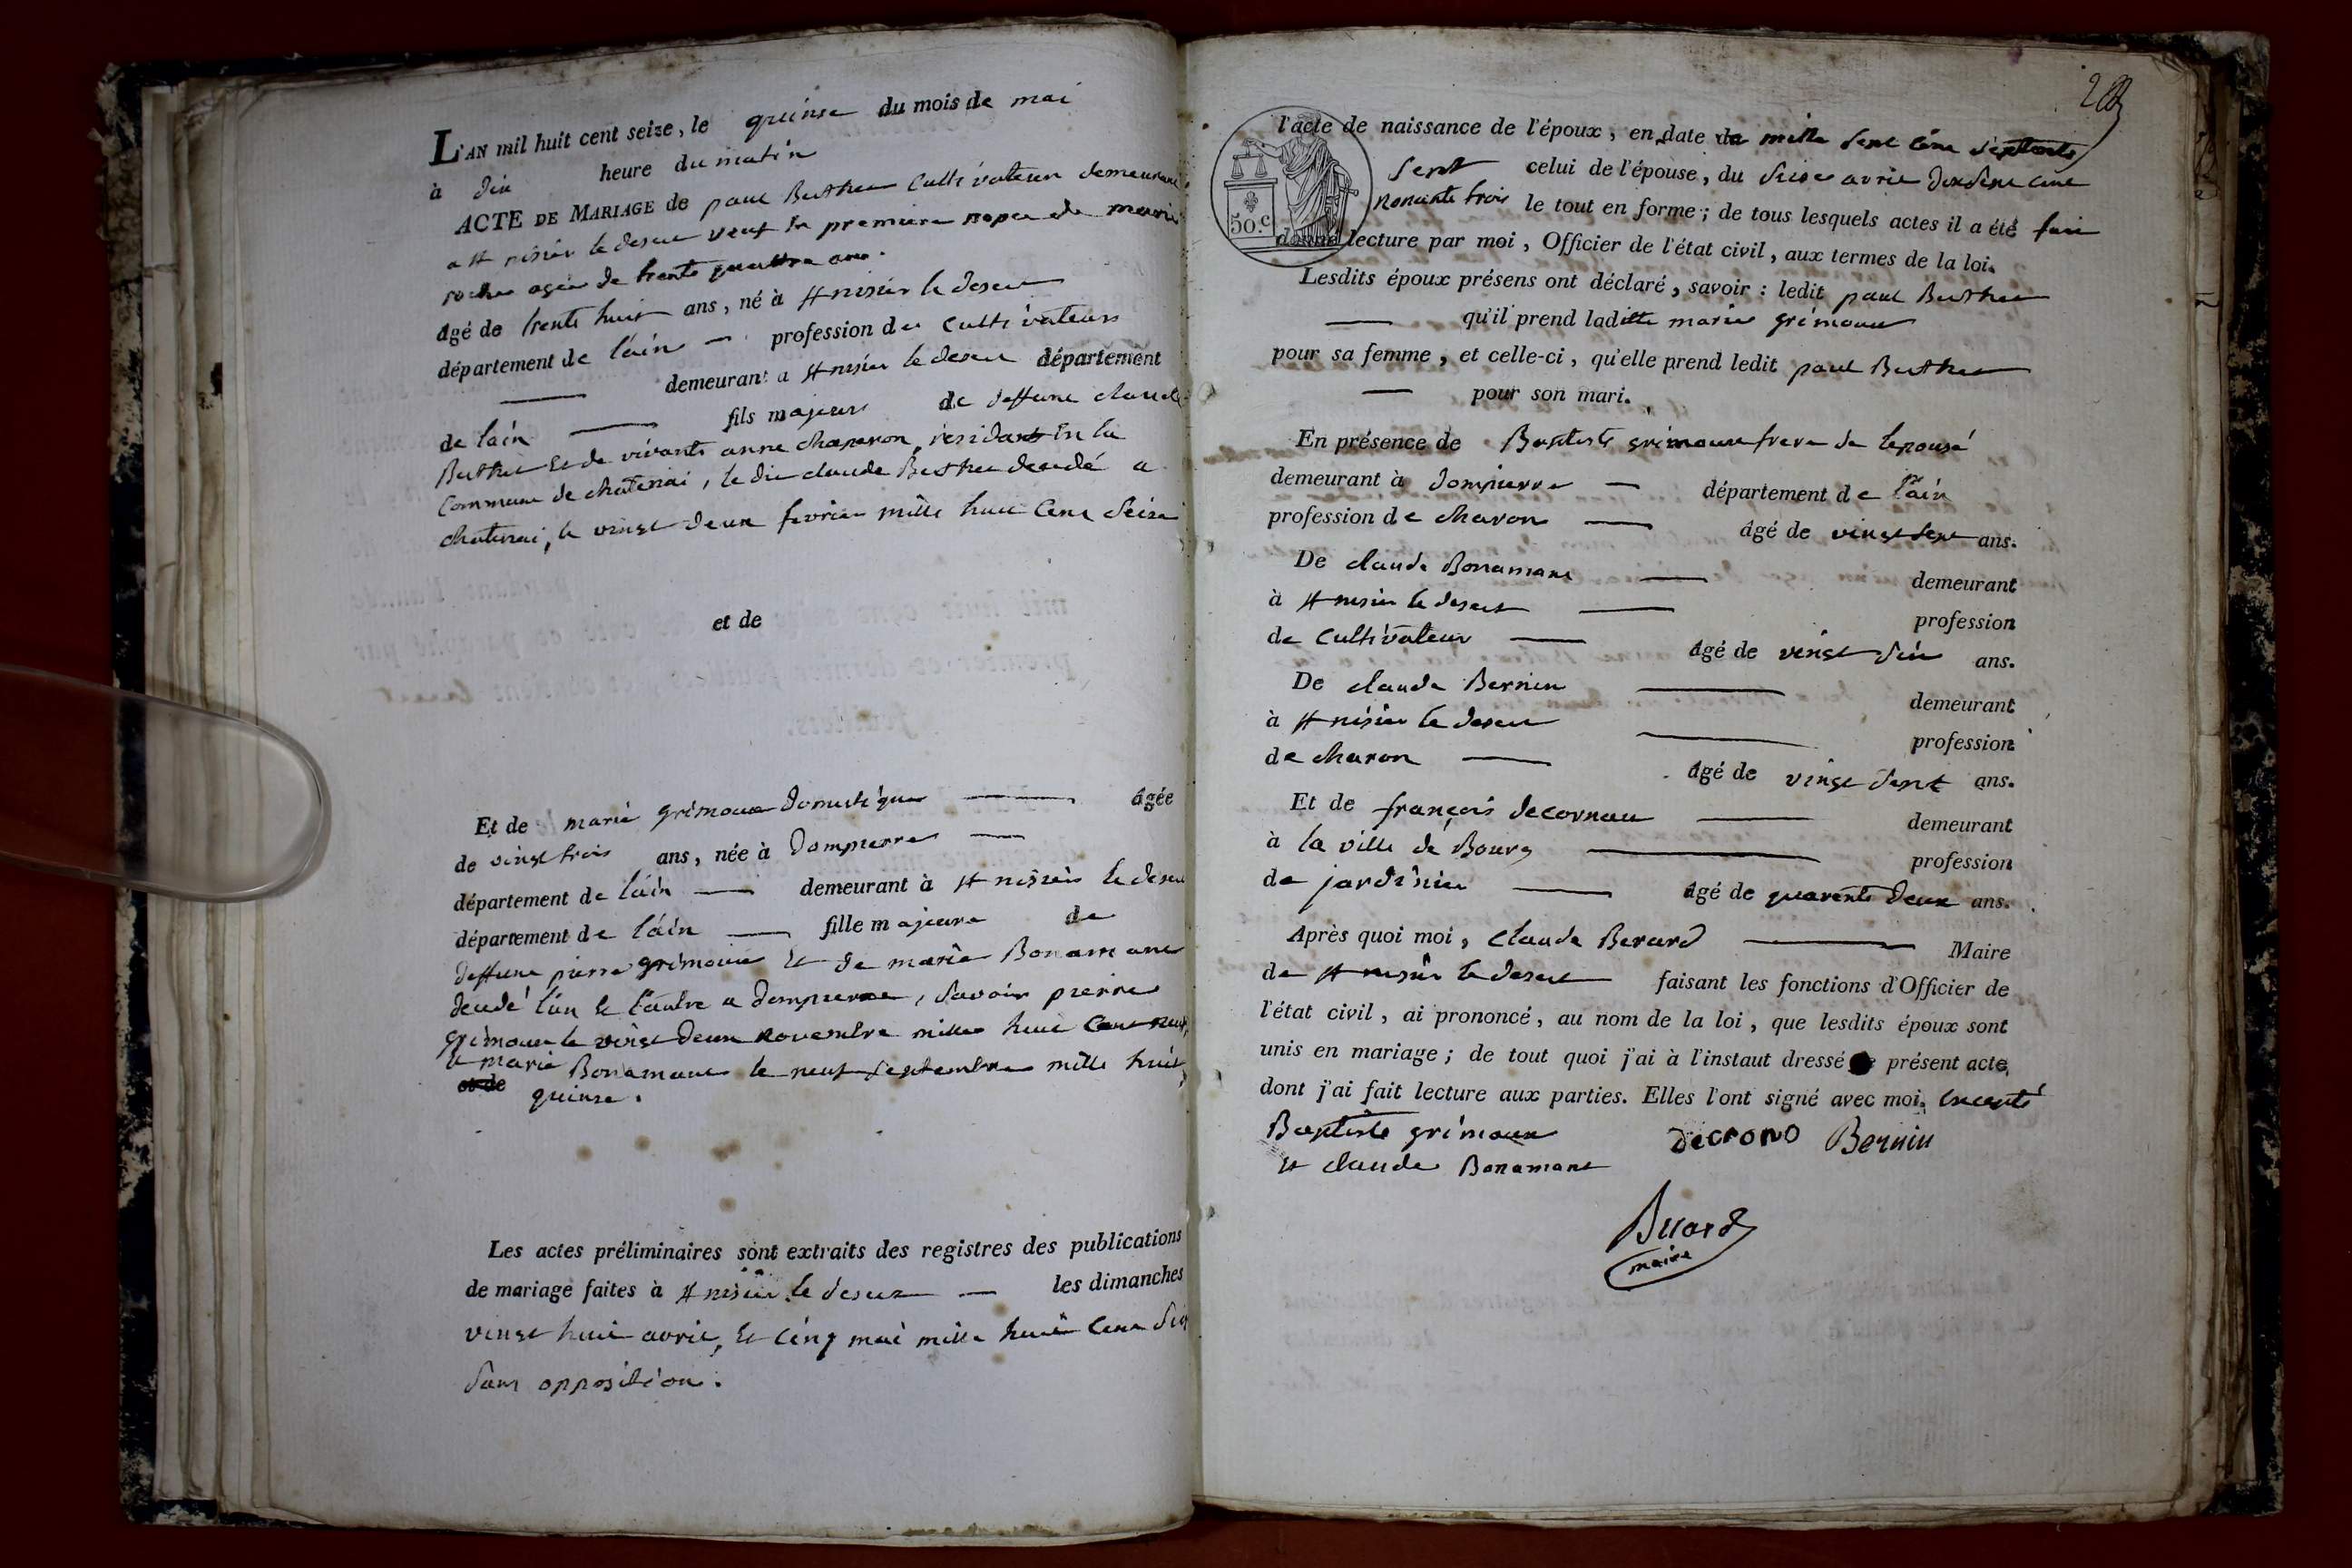 L'AN mil huit cent seize, le quinse du mois de mai
à dix heure du matin
ACTE DE MARIAGE de paul Berthet Cultivateur demeurant
a st nisier le desert veuf en premiere nopce de marie
agée de trente quattre ans.
âgé de trente huit ans, né à st nisier le desert
département de l'ain profession de Cultivateur
demeurant a st nisier le desert département
de lain fils majeur de deffunt claude
Berthet et de vivante anne chaparon, residant en la
Commune de chatenai, le dit claude Berthet decedé a
chatenai, le vingt deux fevrier mille huit Cent Seize
et de
Et de marie grimoux domestique âgée
de vingt trois ans, née à dompierre
département de l'ain demeurant à st nisier le desert
département de l'ain fille majeure de
deffunt pierre grimoux et de marie Bonamant
decedé l'un et l'autre a dompierre, Savoir pierre
grimoux le vingt deux novembre mille huit Cent neuf,
et marie Bonamant le neuf septembre mille huit
et de quinse.
Les actes préliminaires sont extraits des registres des publications
de mariage faites à st nisier le desert les dimanches
vingt huit avril, et cinq mai mille huit Cent
Sans opposition.
l'acte de naissance de l'époux, en date de mille sept cent septante
sept celui de l'épouse, du seise avril dix sept cent
nonante trois le tout en forme; de tous lesquels actes il a été fait
donné lecture par moi, Officier de l'état civil, aux termes de la loi.
Lesdits époux présens ont déclaré, savoir: ledit paul Berthet
qu'il prend laditte marie grimoux
pour sa femme, et celle-ci, qu'elle prend ledit paul Berthet
pour son mari.
En présence de Baptiste grimoux frere de lepousé
demeurant à dompierre département de l'ain
profession de charon âgé de vingt sept ans.
De claude Bonamant demeurant
à st nisier le desert profession
de Cultivateur âgé de vingt six ans.
De claude Bernin demeurant
à st nisier le desert profession
de charon âgé de vingt sept ans.
Et de françois decornau demeurant
à la ville de Bourg profession
de jardinier âgé de quarente deux ans.
Après quoi moi, Claude Berard Maire
de st nisier le desert faisant les fonctions d'Officier de
l'état civil, ai prononcé, au nom de la loi, que lesdits époux sont
unis en mariage; de tout quoi j'ai à l'instaut dressé présent acte,
dont j'ai fait lecture aux parties. Elles l'ont signé avec moi, excepté
Baptiste grimoux decrono Bernin
et claude Bonamant
Berard
maire
50.c